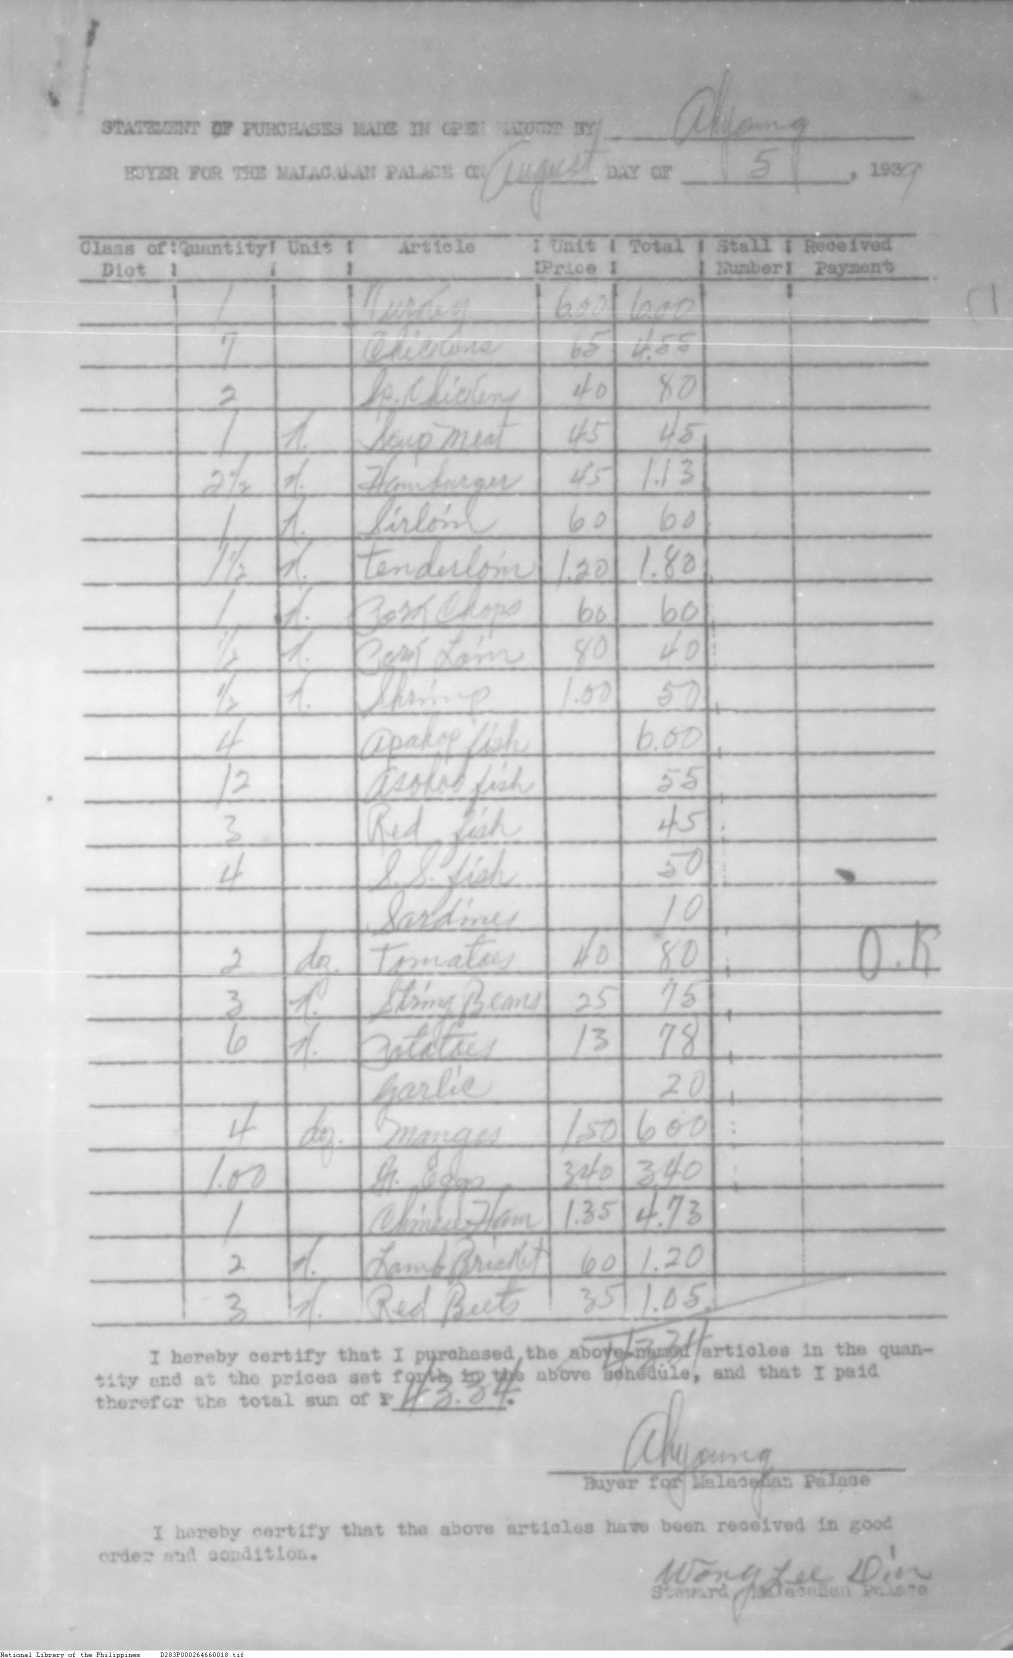 STATEMENT OF PURCHASES MADE IN OPEN MARKET BY Ahyoung
BUYER FOR THE MALACAÑAN PALACE ON August DAY OF 5, 1939
Class of Diet Quantity Unit Article Unit Price Total Stall Number Received Payment
1 Turkey 6.00 6.00
7 Chickens 65 4.55
2 Sp. Chickens 40 80
1 k. Soup meat 45 45
2½ k. Hamburger 45 1.13
1 k. Sirloin 60 60
1½ k. Tenderloin 1.20 1.80
1 k. Pork Chops 60 60
½ k. Pork Loin 80 40
½ k. Shrimp 1.00 50
4 Apahop fish 6.00
12 Asohos fish 55
3 Red fish 45
4 S.S. fish 50
Sardines 10
2 dz. Tomatoes 40 80
O.K
3 k. String Beans 25 75
6 k. Potatoes 13 78
Garlic 20
4 dz. Mangos 150 600
1.00 Eggs 340 340
1 Chinese Ham 1.35 4.73
2 k. Lamb Bricket 60 1.20
3 k. Red Beets 35 1.05
43.34
I hereby certify that I purchased the above named articles in the quan-
tity and at the prices set forth in the above schedule, and that I paid
therefor the total sum of ₱ 43.34.
Ahyoung
Buyer for Malacañan Palace
I hereby certify that the above articles have been received in good
order and condition.
Wong Lee Din
Steward, Malacañan Palace
National Library of the Philippines D283P000264660018.tif